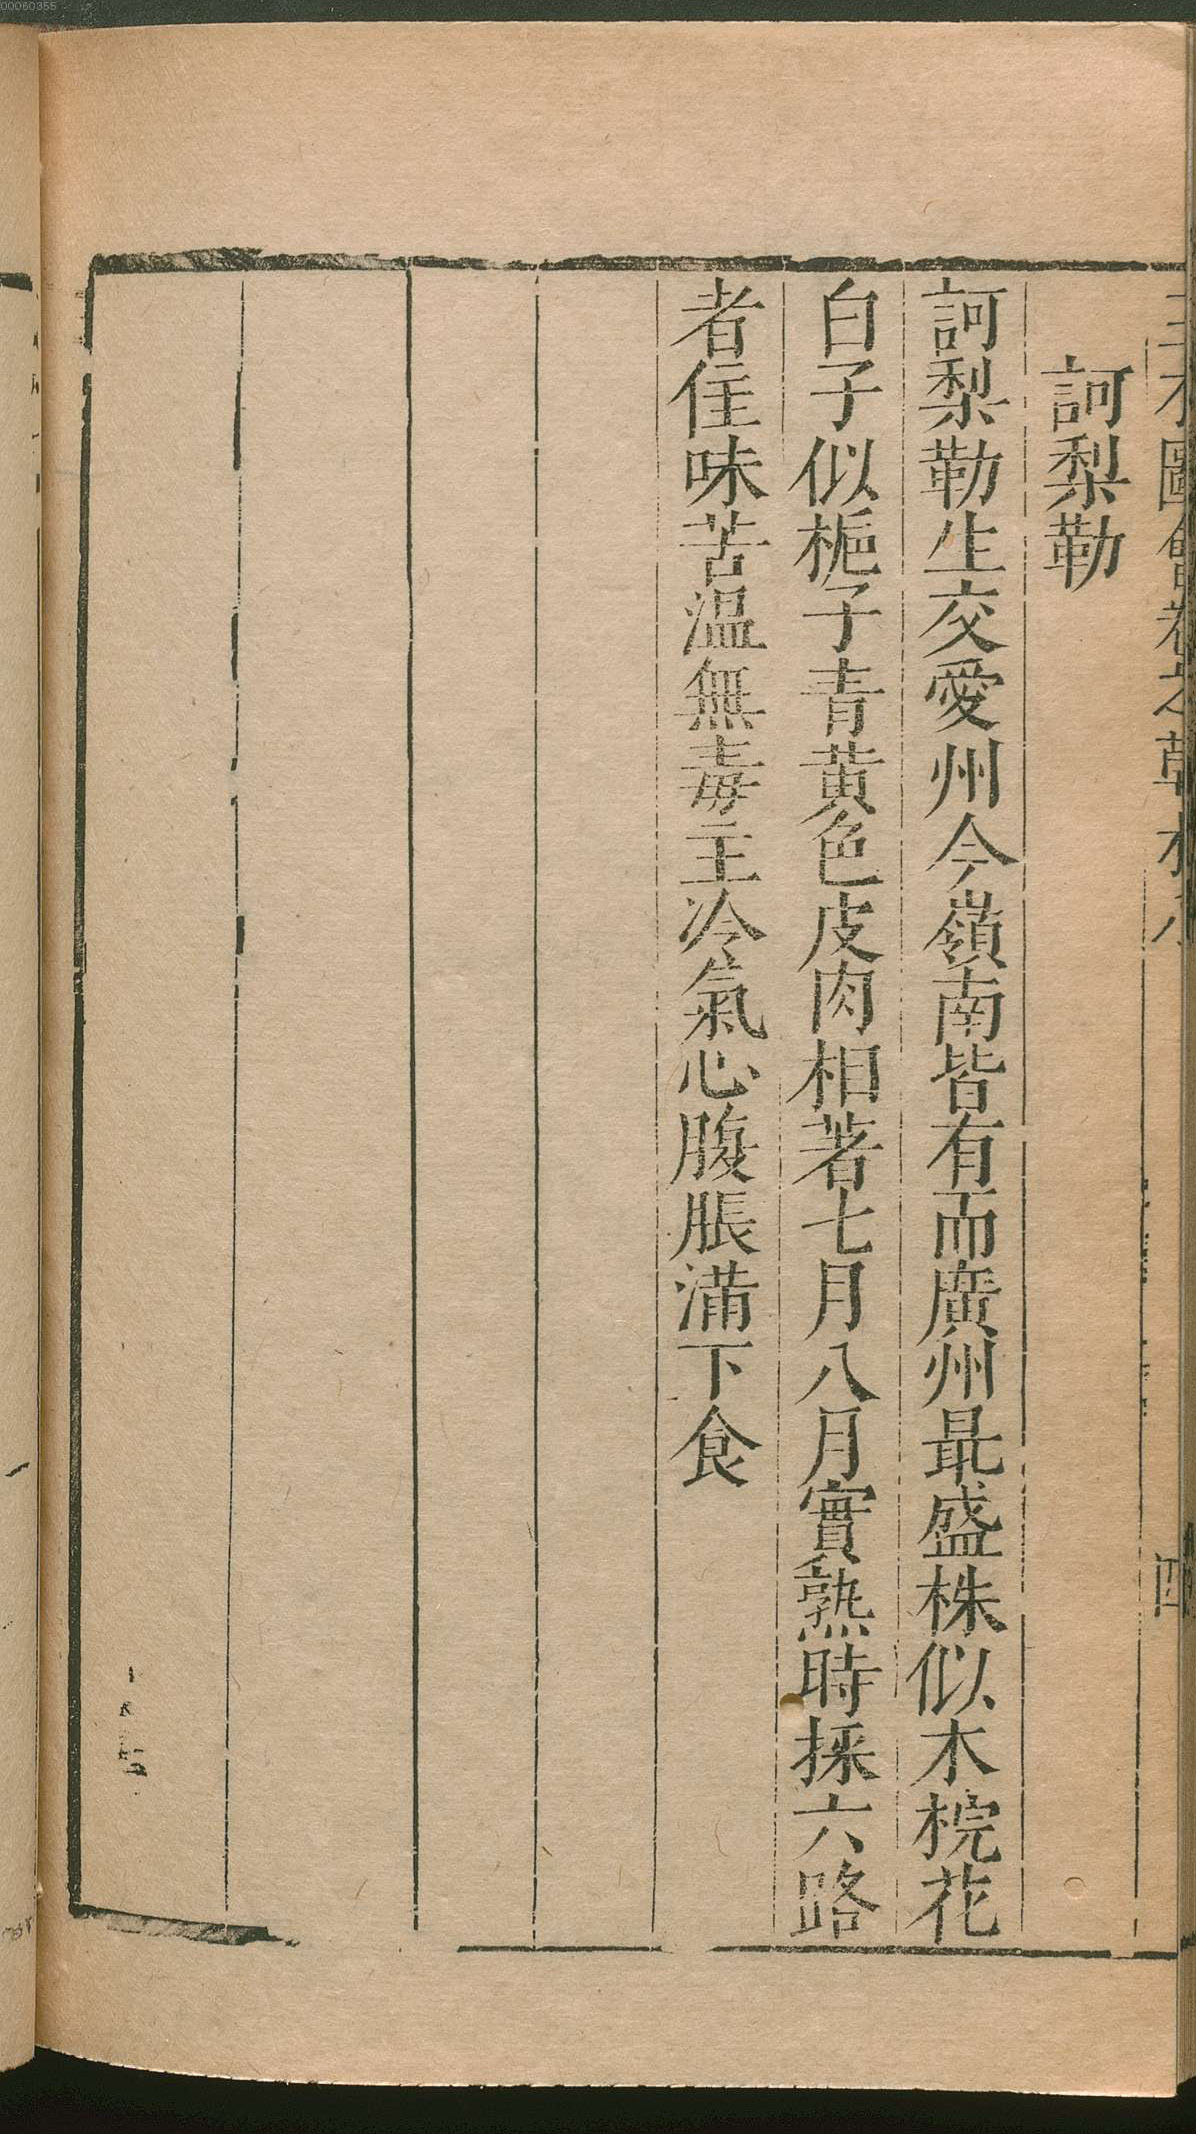 訶梨勒
訶梨勒生交愛州今嶺南皆有而廣州最盛株似木梡花
白子似梔子青黃色皮肉相著七月八月實熟時採六路
者佳味苦溫無毒主冷氣心腹脹滿下食
00060355